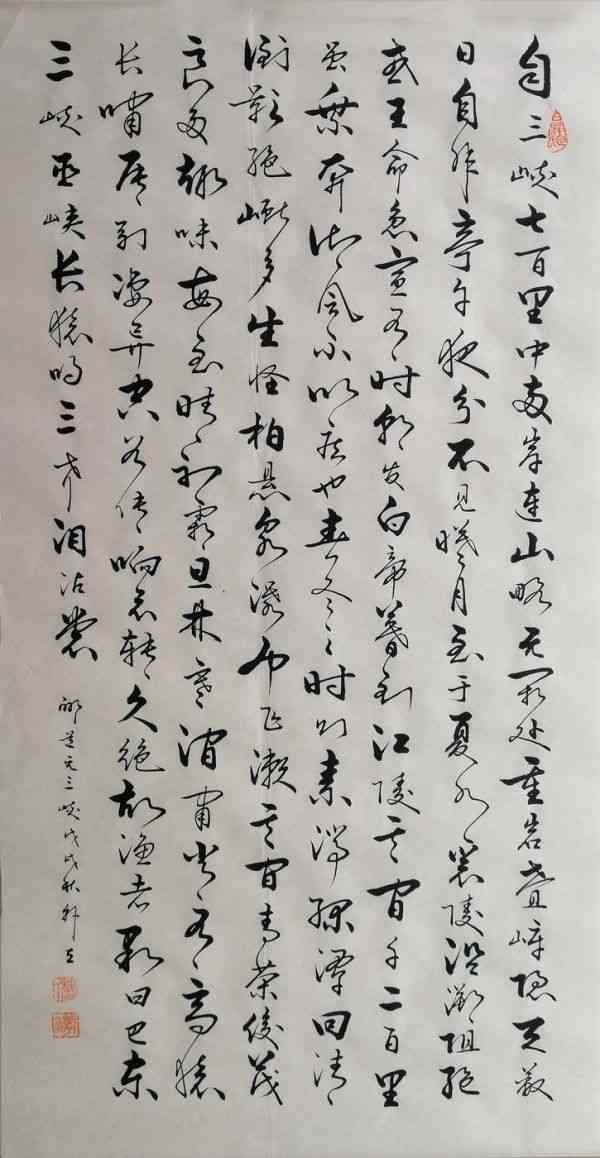 自三峡七百里中两岸连山略无阙处重岩叠嶂隐天蔽
日自非亭午夜分不见曦月至于夏水襄陵沿溯阻绝
或王命急宣有时朝发白帝暮到江陵其间千二百里
虽乘奔御风不以疾也春冬之时则素湍绿潭回清
倒影绝巘多生怪柏悬泉瀑布飞漱其间清荣峻茂
良多趣味每至晴初霜旦林寒涧肃常有高猿
长啸属引凄异空谷传响哀转久绝故渔者歌曰巴东
三峡巫峡长猿鸣三声泪沾裳
郦道元三峡戊戌秋